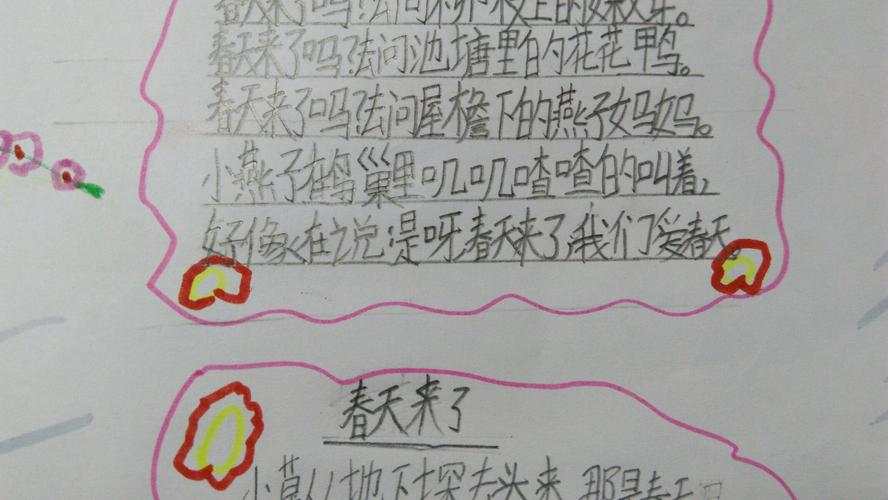 春天来了吗?去问枝上的
春天来了吗?去问池塘里的花花鸭。
春天来了吗?去问屋檐下的燕子妈妈。
小燕子在鸟巢里叽叽喳喳的叫着,
好像在说:是呀春天来了,我们了爱春天。
春天来了
小草从地下探出头来,那是春天